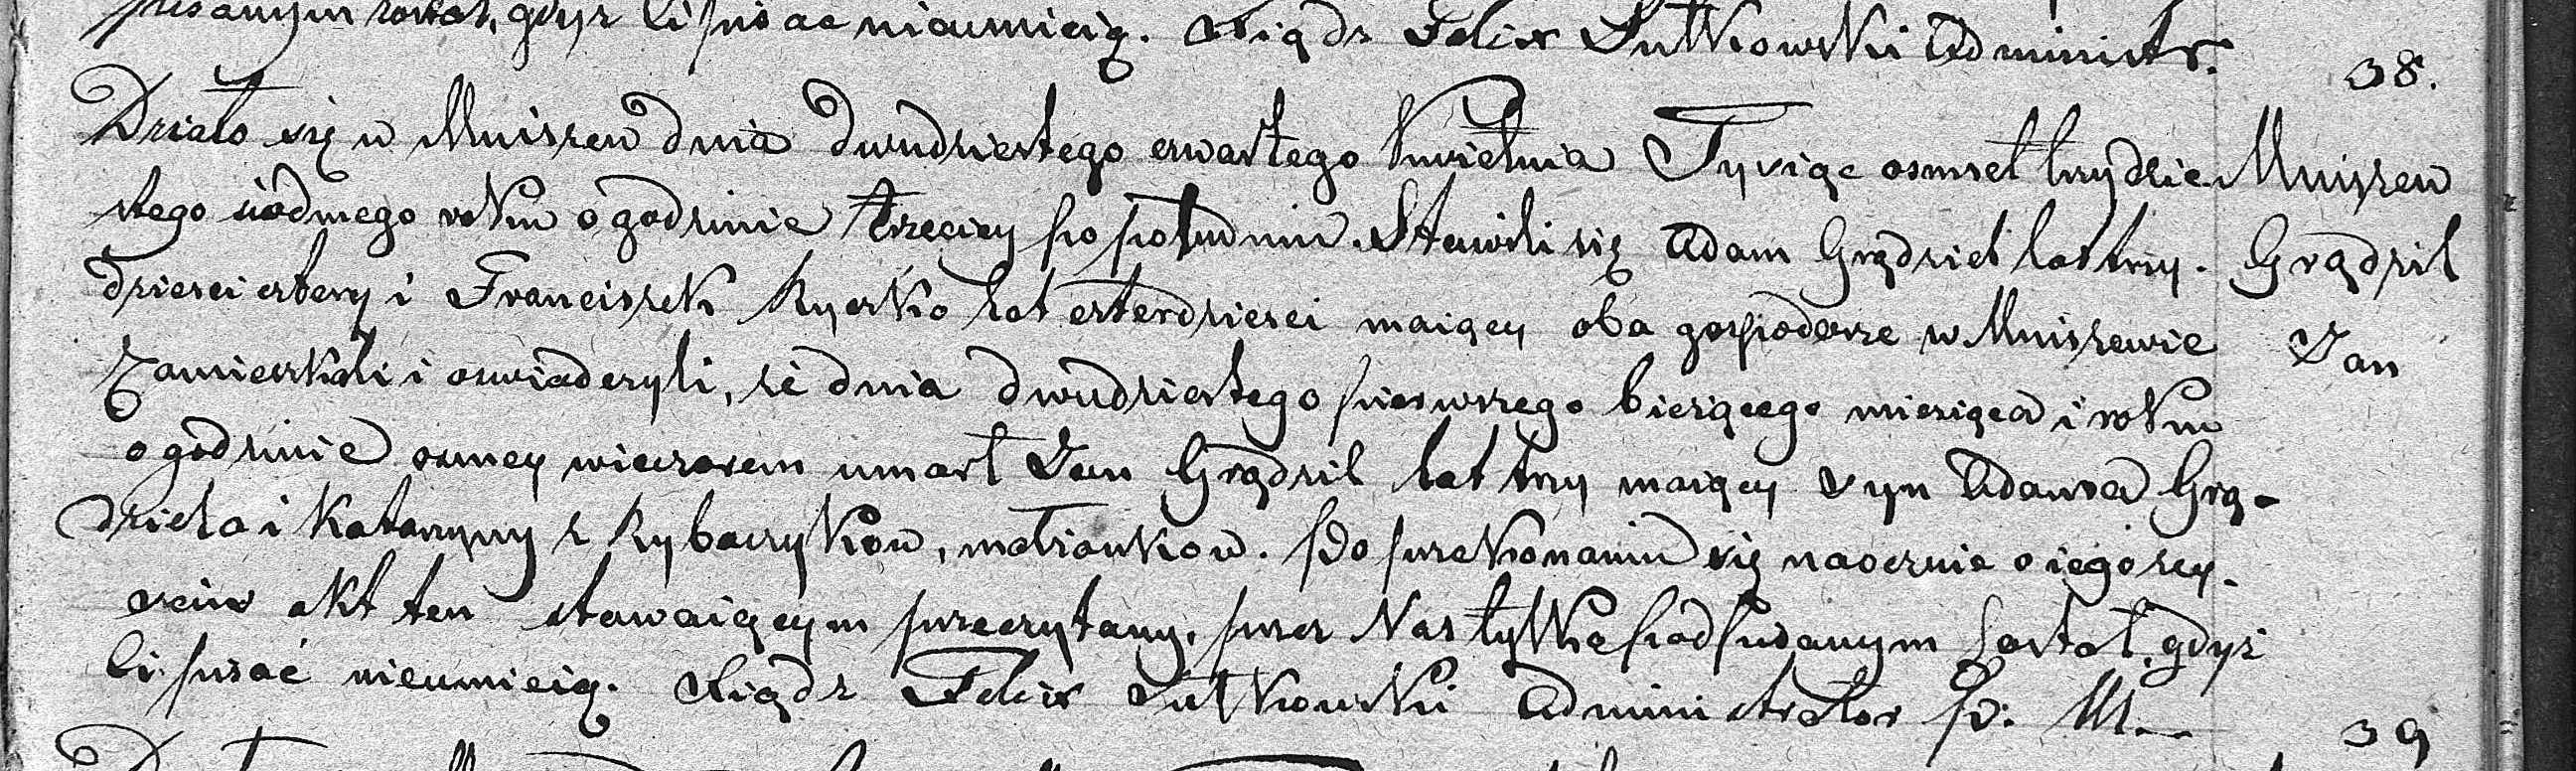 pisanym został, gdyż Ci pisać nieumieią. Xiądz Felix Sutkowski Administr.
38.
Działo się w Mniszew dnia dwudziestego czwartego Kwietnia Tysiąc osmset trzydzie-
stego siódmego roku o godzinie trzeciey po południu. Stawili się Adam Grądziel lat trzy-
dzieści cztery i Franciszek Rycrko lat czterdzieści maiący oba gospodarze w Mniszewie
Zamieszkali i oswiadczyli, że dnia dwudziestego pierwszego bieżącego miesiąca i roku
o godzinie osmey wieczorem umarł Jan Grądzil lat trzy maiący syn Adama Grą-
dziela i Katarzyny z Rybarzyków, małżonków. Po przekonaniu się naocznie o iego zey-
ściu akt ten stawaiącym przeczytany, przez Nas tylko podpisanym został, gdyż
Ci pisać nieumieią. Xiądz Felix Sutkowski Administrator P. M.
Mniszew
Grądzil
Jan
39